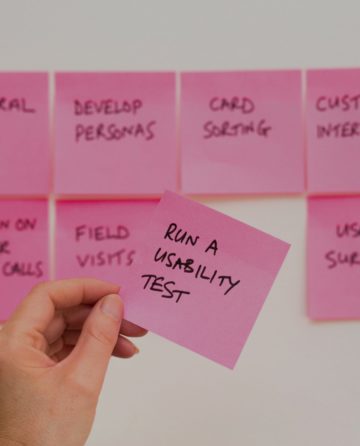 RAL
DEVELOP
PERSONAS
CARD
SORTING
CUST
INTER
N ON
R
CALLS
FIELD
VISITS
RUN A
USABILITY
TEST
US
SUR